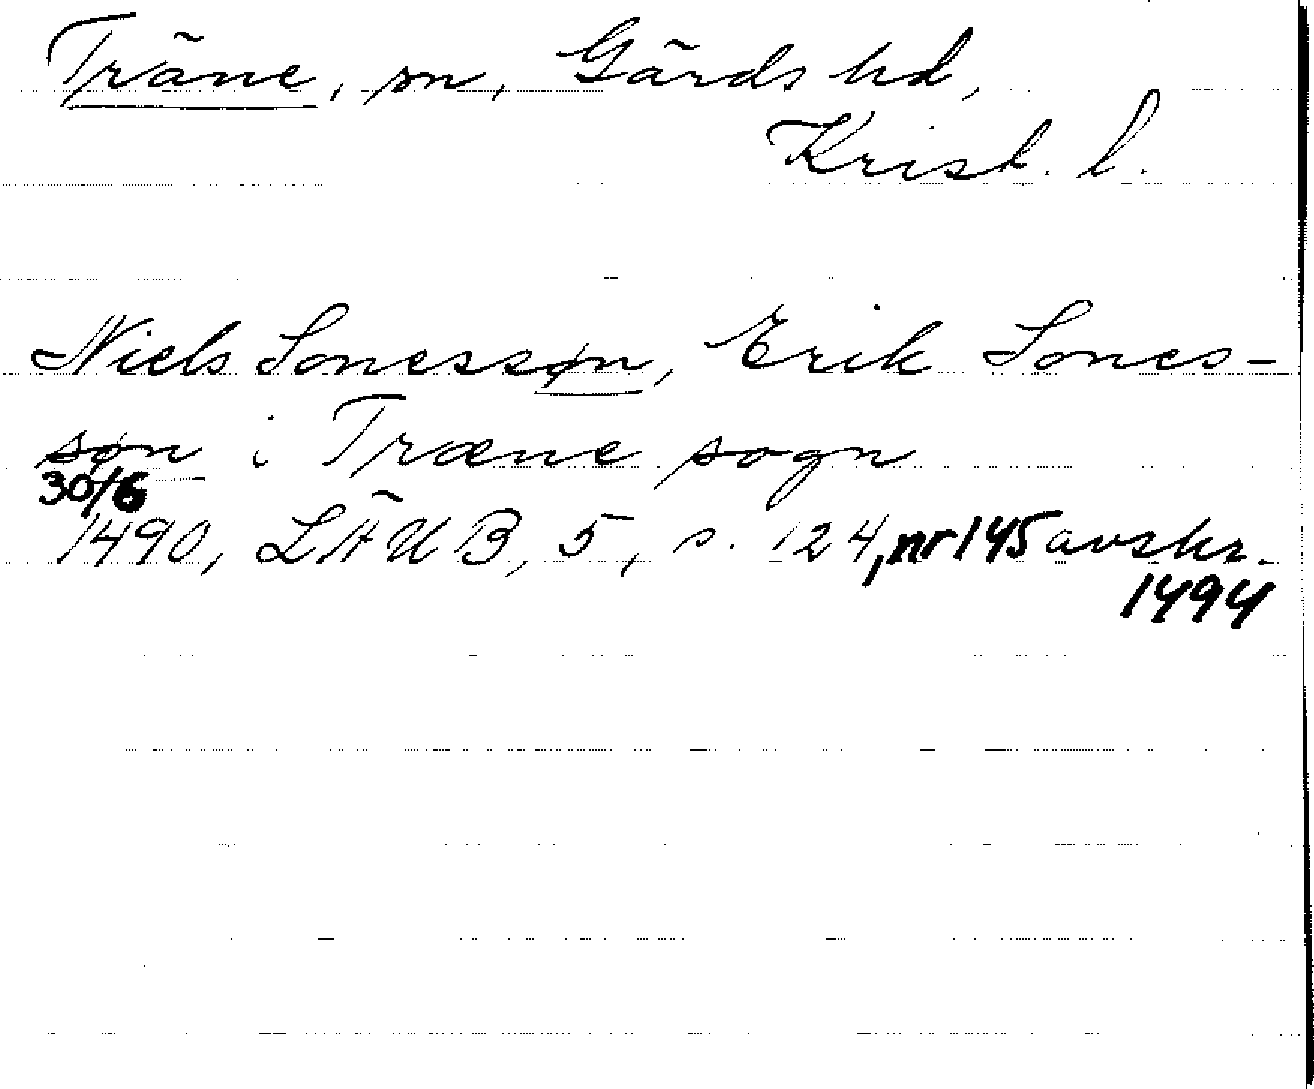 Träne, sn, Gärds hd,
Krist. l.
Niels Sonessøn, Erik Sones-
søn i Træne sogn
30/6
1490, LÄUB, 5, s. 124, nr 145 avskr.
1494